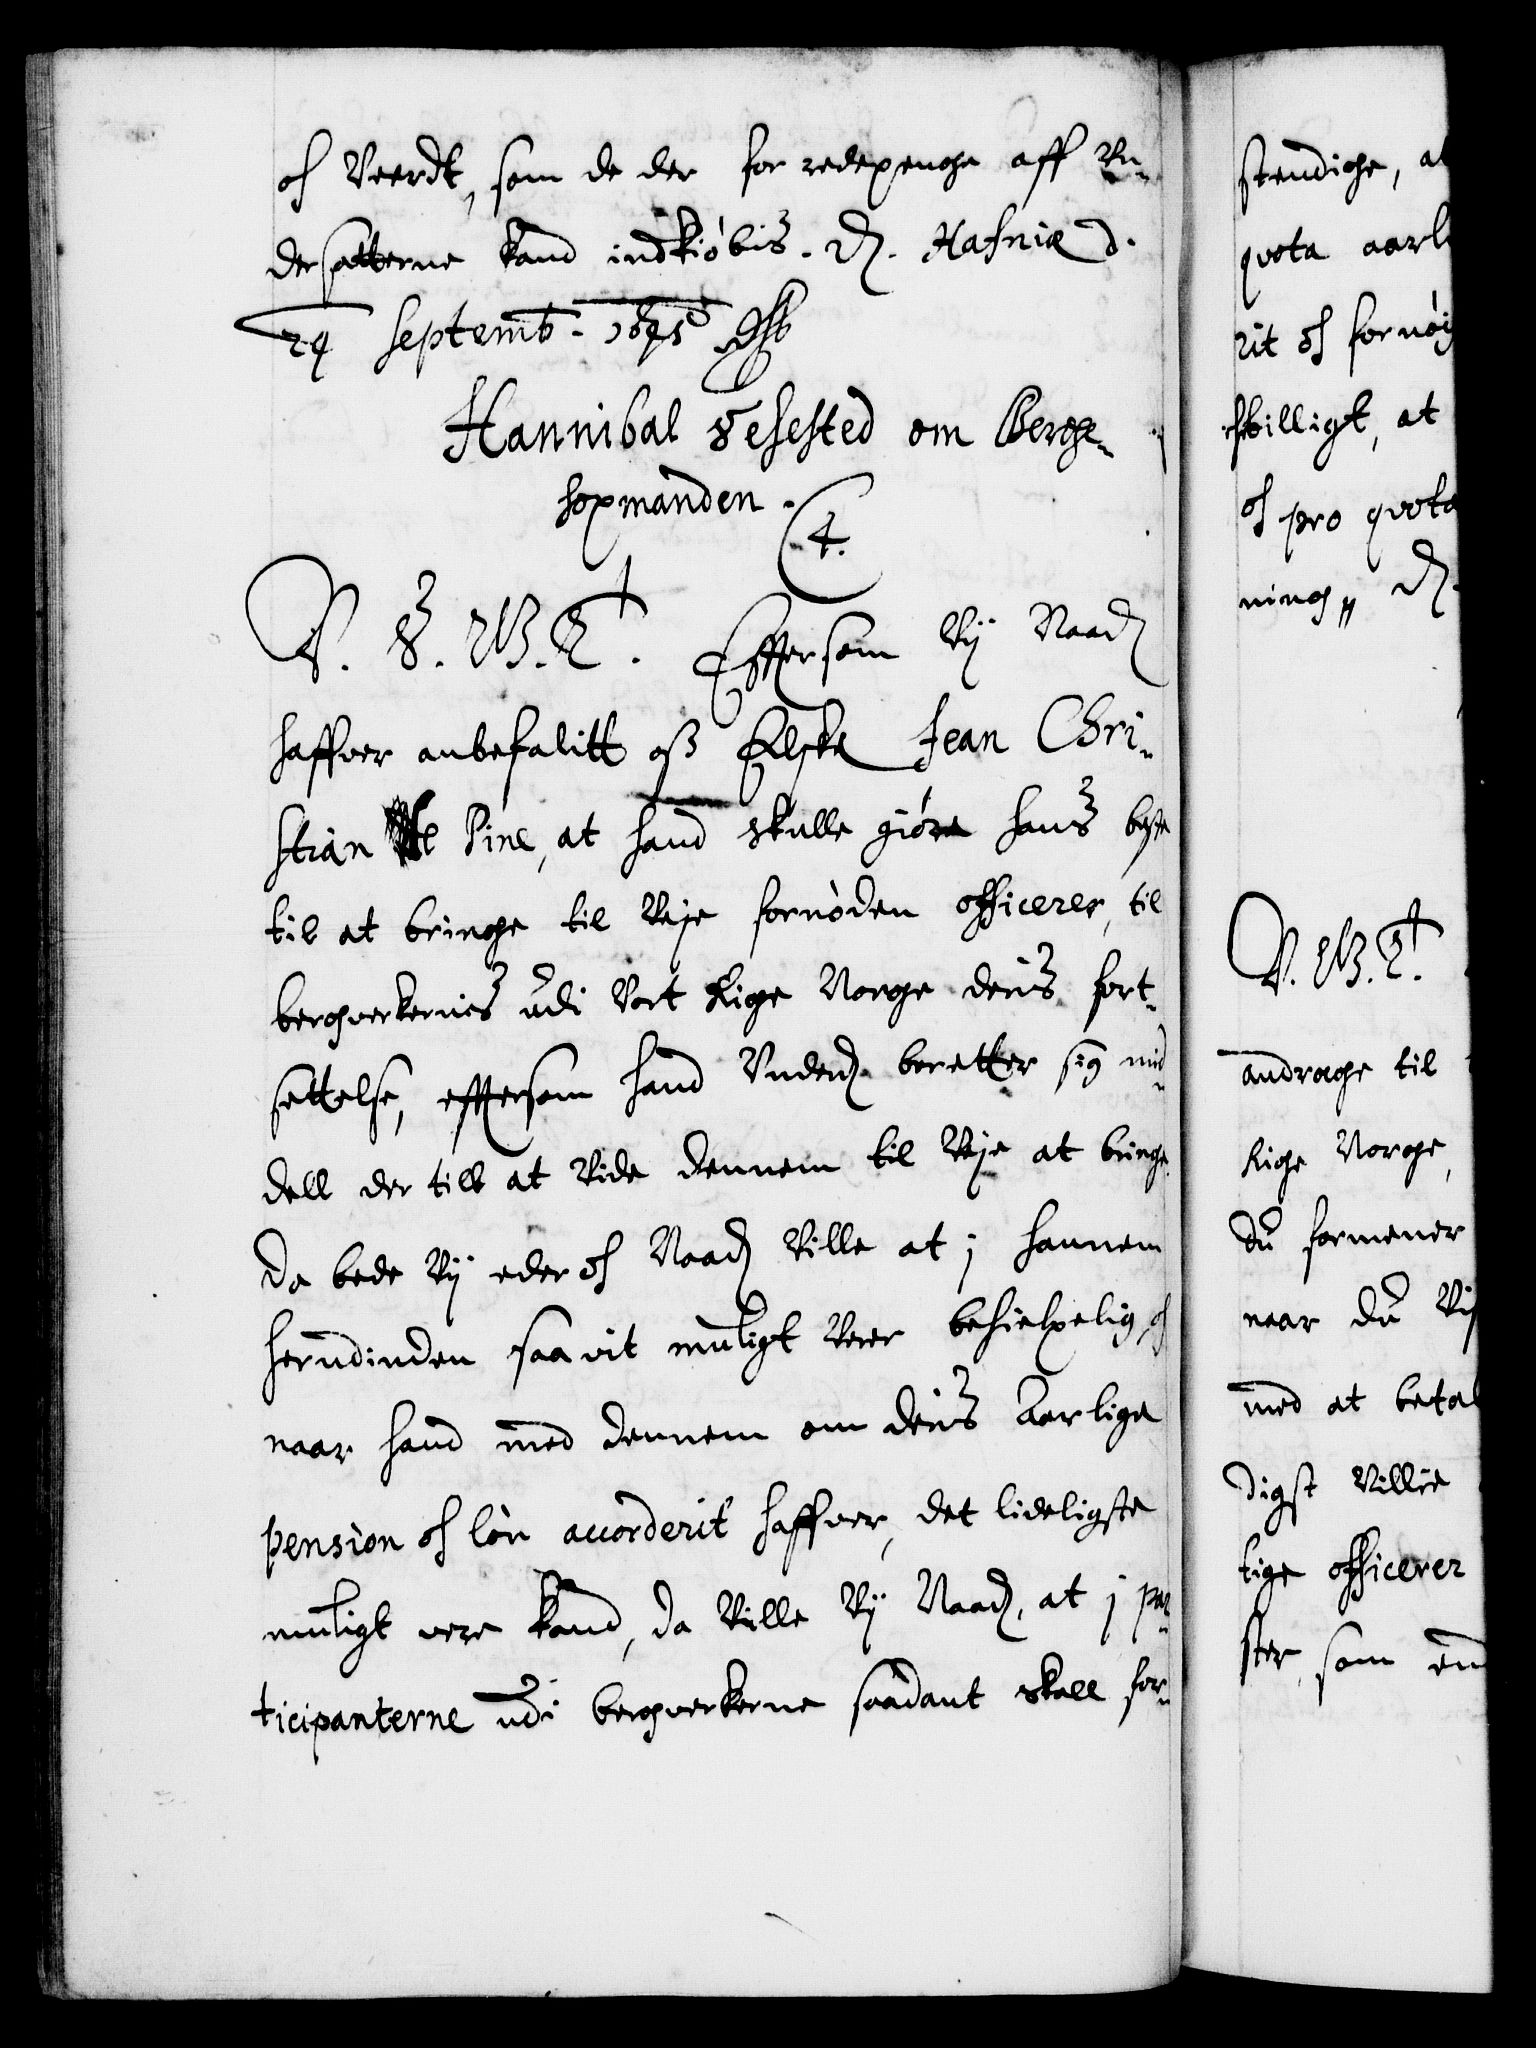 och Veerdt, som de der for redepenge aff Un-
dersaatterne kand indkiøbis. Dat. Hafniæ d.
29 Septemb. 1645
Hannibal Sehested om Berg-
hopmanden.
4.
C. 4. V. S. G. T. Eftersom Vij Naad.
haffver anbefalitt oss Elske Jean Chri-
stian Pine, at hand skulle giøre hans beste
til at bringe til Veje fornøden officerer, til
bergverkernes udi Vort Rige Norge deris fort-
settelse, effterson hand Underd. beretter sig mid-
dell der till at Vide dennem til Veje at bringe.
Da bede Vij eder och Naad. Ville at j hannem
herudinden saa vit muligt Verer behielpelig, och
naar hand med dennem om deris Aarlige
pension och løn accorderit haffver, det lideligste
muligt vere kand, da Ville Vij Naad. at j par-
ticipanterne udi bergverkerne saadant skall for-
stendige, a
quota aarl
rit och fornøy
skilligt, at
och pro quota
ning, D.
C. 4. V. G. T.
andrage til
Rige Norge,
du formener
naar du Vi
med at betal
digst Villie
tige officerer
ster, som end